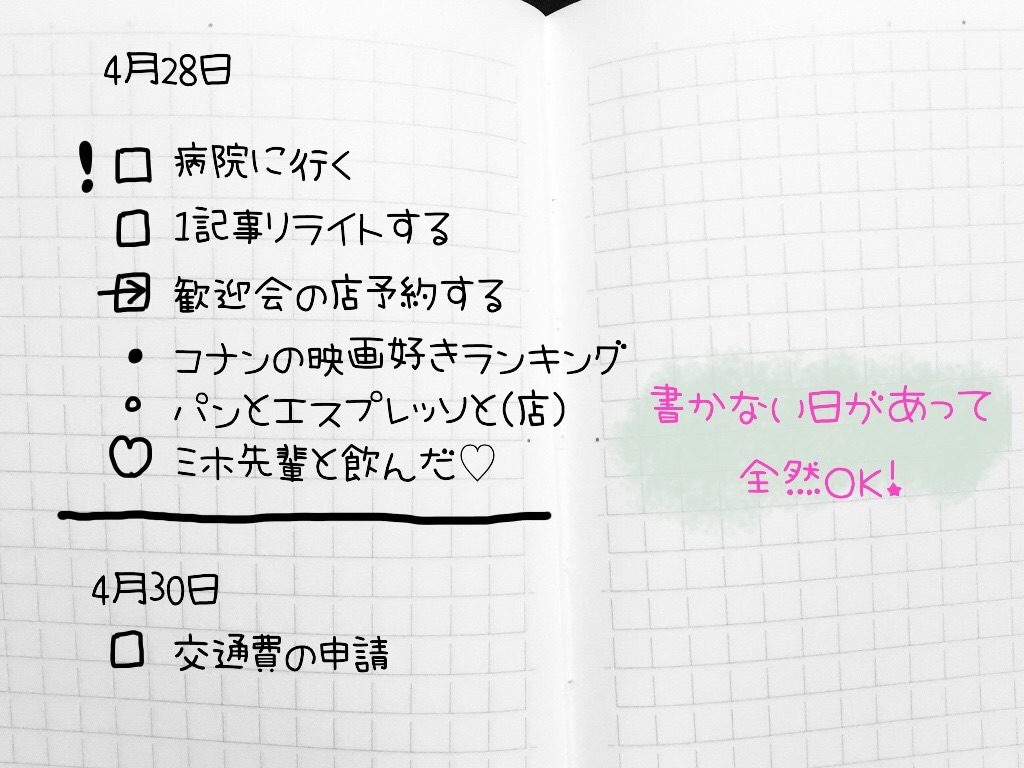 4月28日
! □ 病院に行く
□ 1記事リライトする
→ 歓迎会の店予約する
• コナンの映画好きランキング
○ パンとエスプレッソと(店)
♡ ミホ先輩と飲んだ♡
4月30日
□ 交通費の申請
書かない日があって
全然OK!